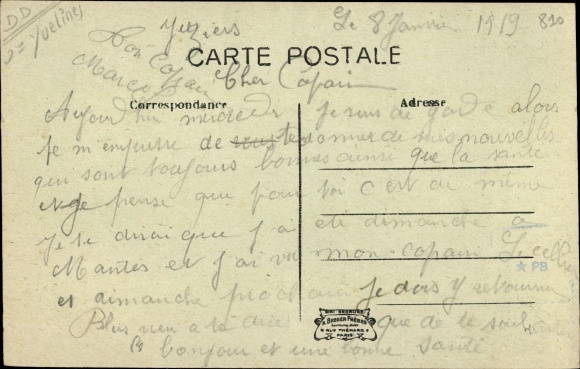 DD
= Yvelines
Le 8 Janvier 1919 810
Ton Copain
Marcel
CARTE POSTALE
Cher Copain
Correspondance
Adresse
Aujourd'hui mercredi je suis de garde alors
je m'empresse de te donner de mes nouvelles
qui sont toujours bonnes ainsi que la santé
et je pense que pour toi c'est de même
je te dirai que j'ai été dimanche a
Mantes et j'ai vu mon copain
PB
et dimanche prochain je dois y retourner
Plus rien a te dire que de te souhaiter
le bonjour et une bonne santé
BERGER FRÈRES
9 RUE THÉNARD 9
PARIS